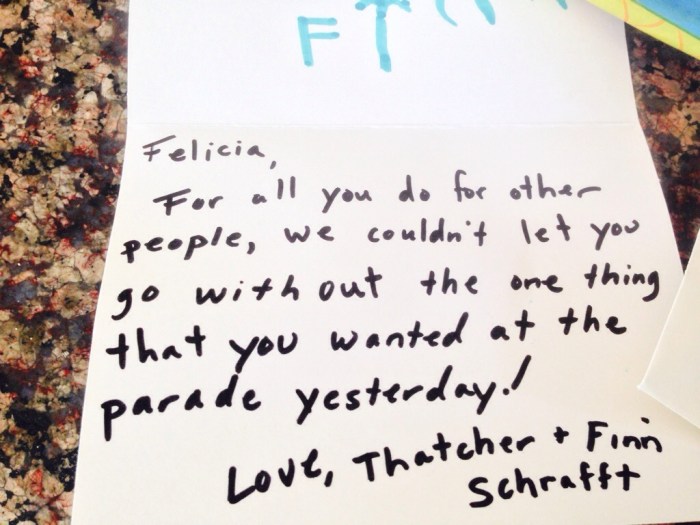 F
Felicia,
For all you do for other
people, we couldn't let you
go without the one thing
that you wanted at the
parade yesterday!
Love, Thatcher + Finn
Schrafft